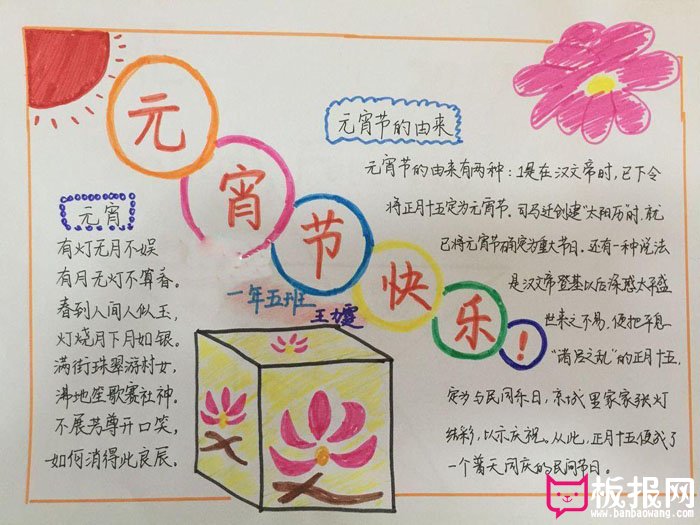 元宵节快乐!
一年五班
元宵
有灯无月不娱
有月无灯不算春。
春到人间人似玉,
灯烧月下月如银。
满街珠翠游村女,
沸地笙歌赛社神。
不展芳尊开口笑,
如何消得此良辰。
元宵节的由来
元宵节的由来有两种:1是在汉文帝时,已下令
将正月十五定为元宵节。司马迁创建"太阳历"时,就
已将元宵节确定为重大节日。还有一种说法
是汉文帝登基以后深感太平盛
世来之不易,便把平息
"诸吕之乱"的正月十五,
定为与民同乐日,京城里家家张灯
结彩,以示庆祝。从此,正月十五便成了
一个普天同庆的民间节日。
板报网
www.banbaowang.com